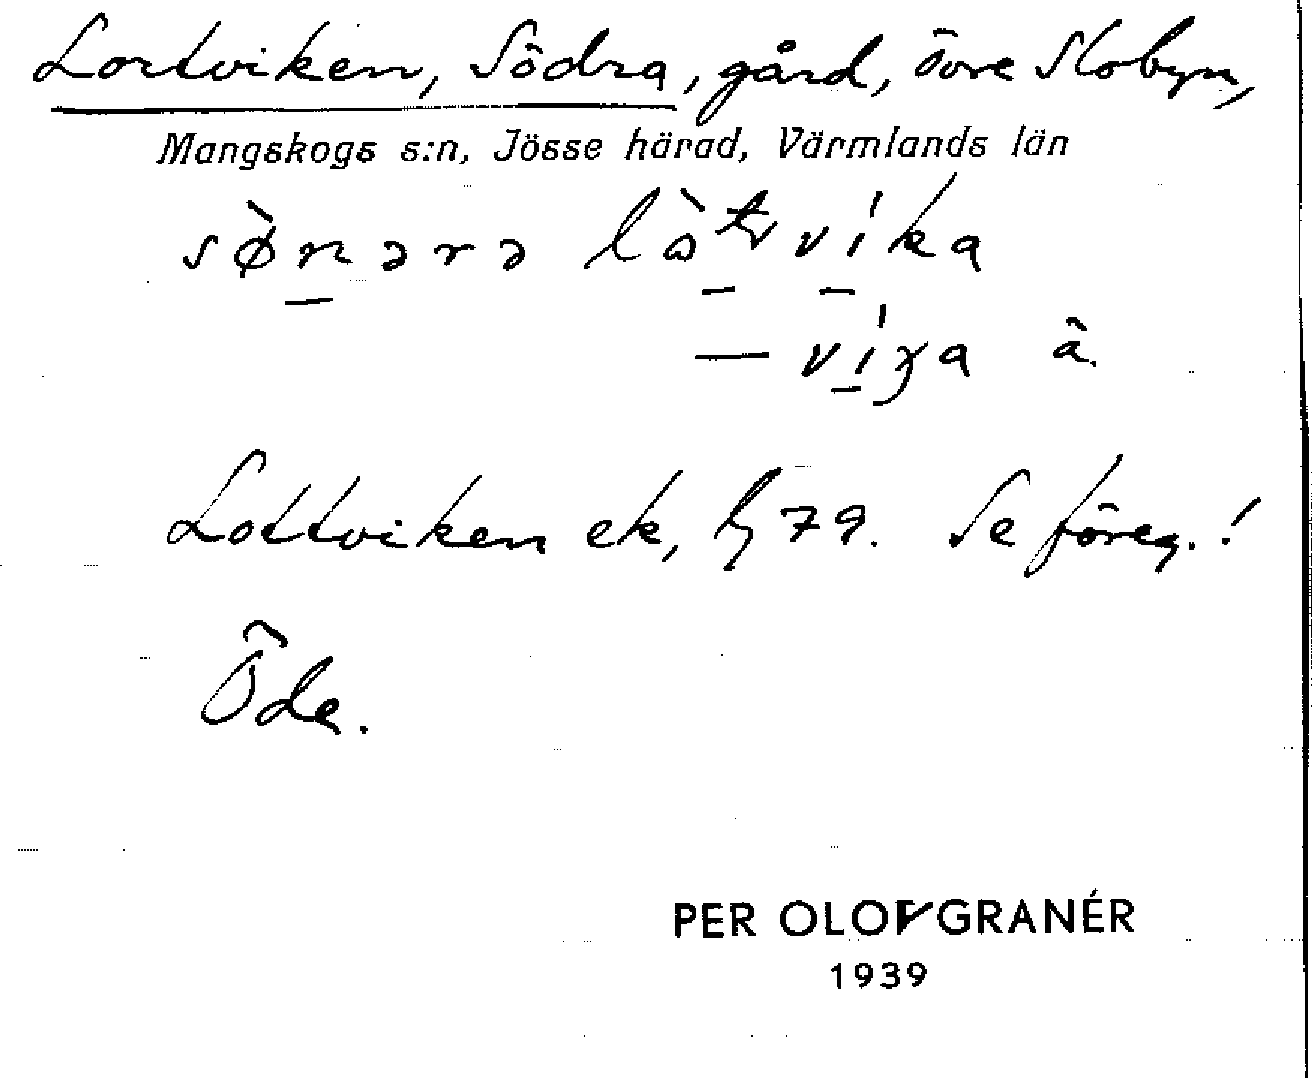 Lortviken, Södra, gård, övre Slobyn,
Mangskogs s:n, Jösse härad, Värmlands län
sø̀nərə
— víɣa â.
Lottviken ek, hj 79. Se föreg.!
Öde.
PER OLOF GRANÉR
1939